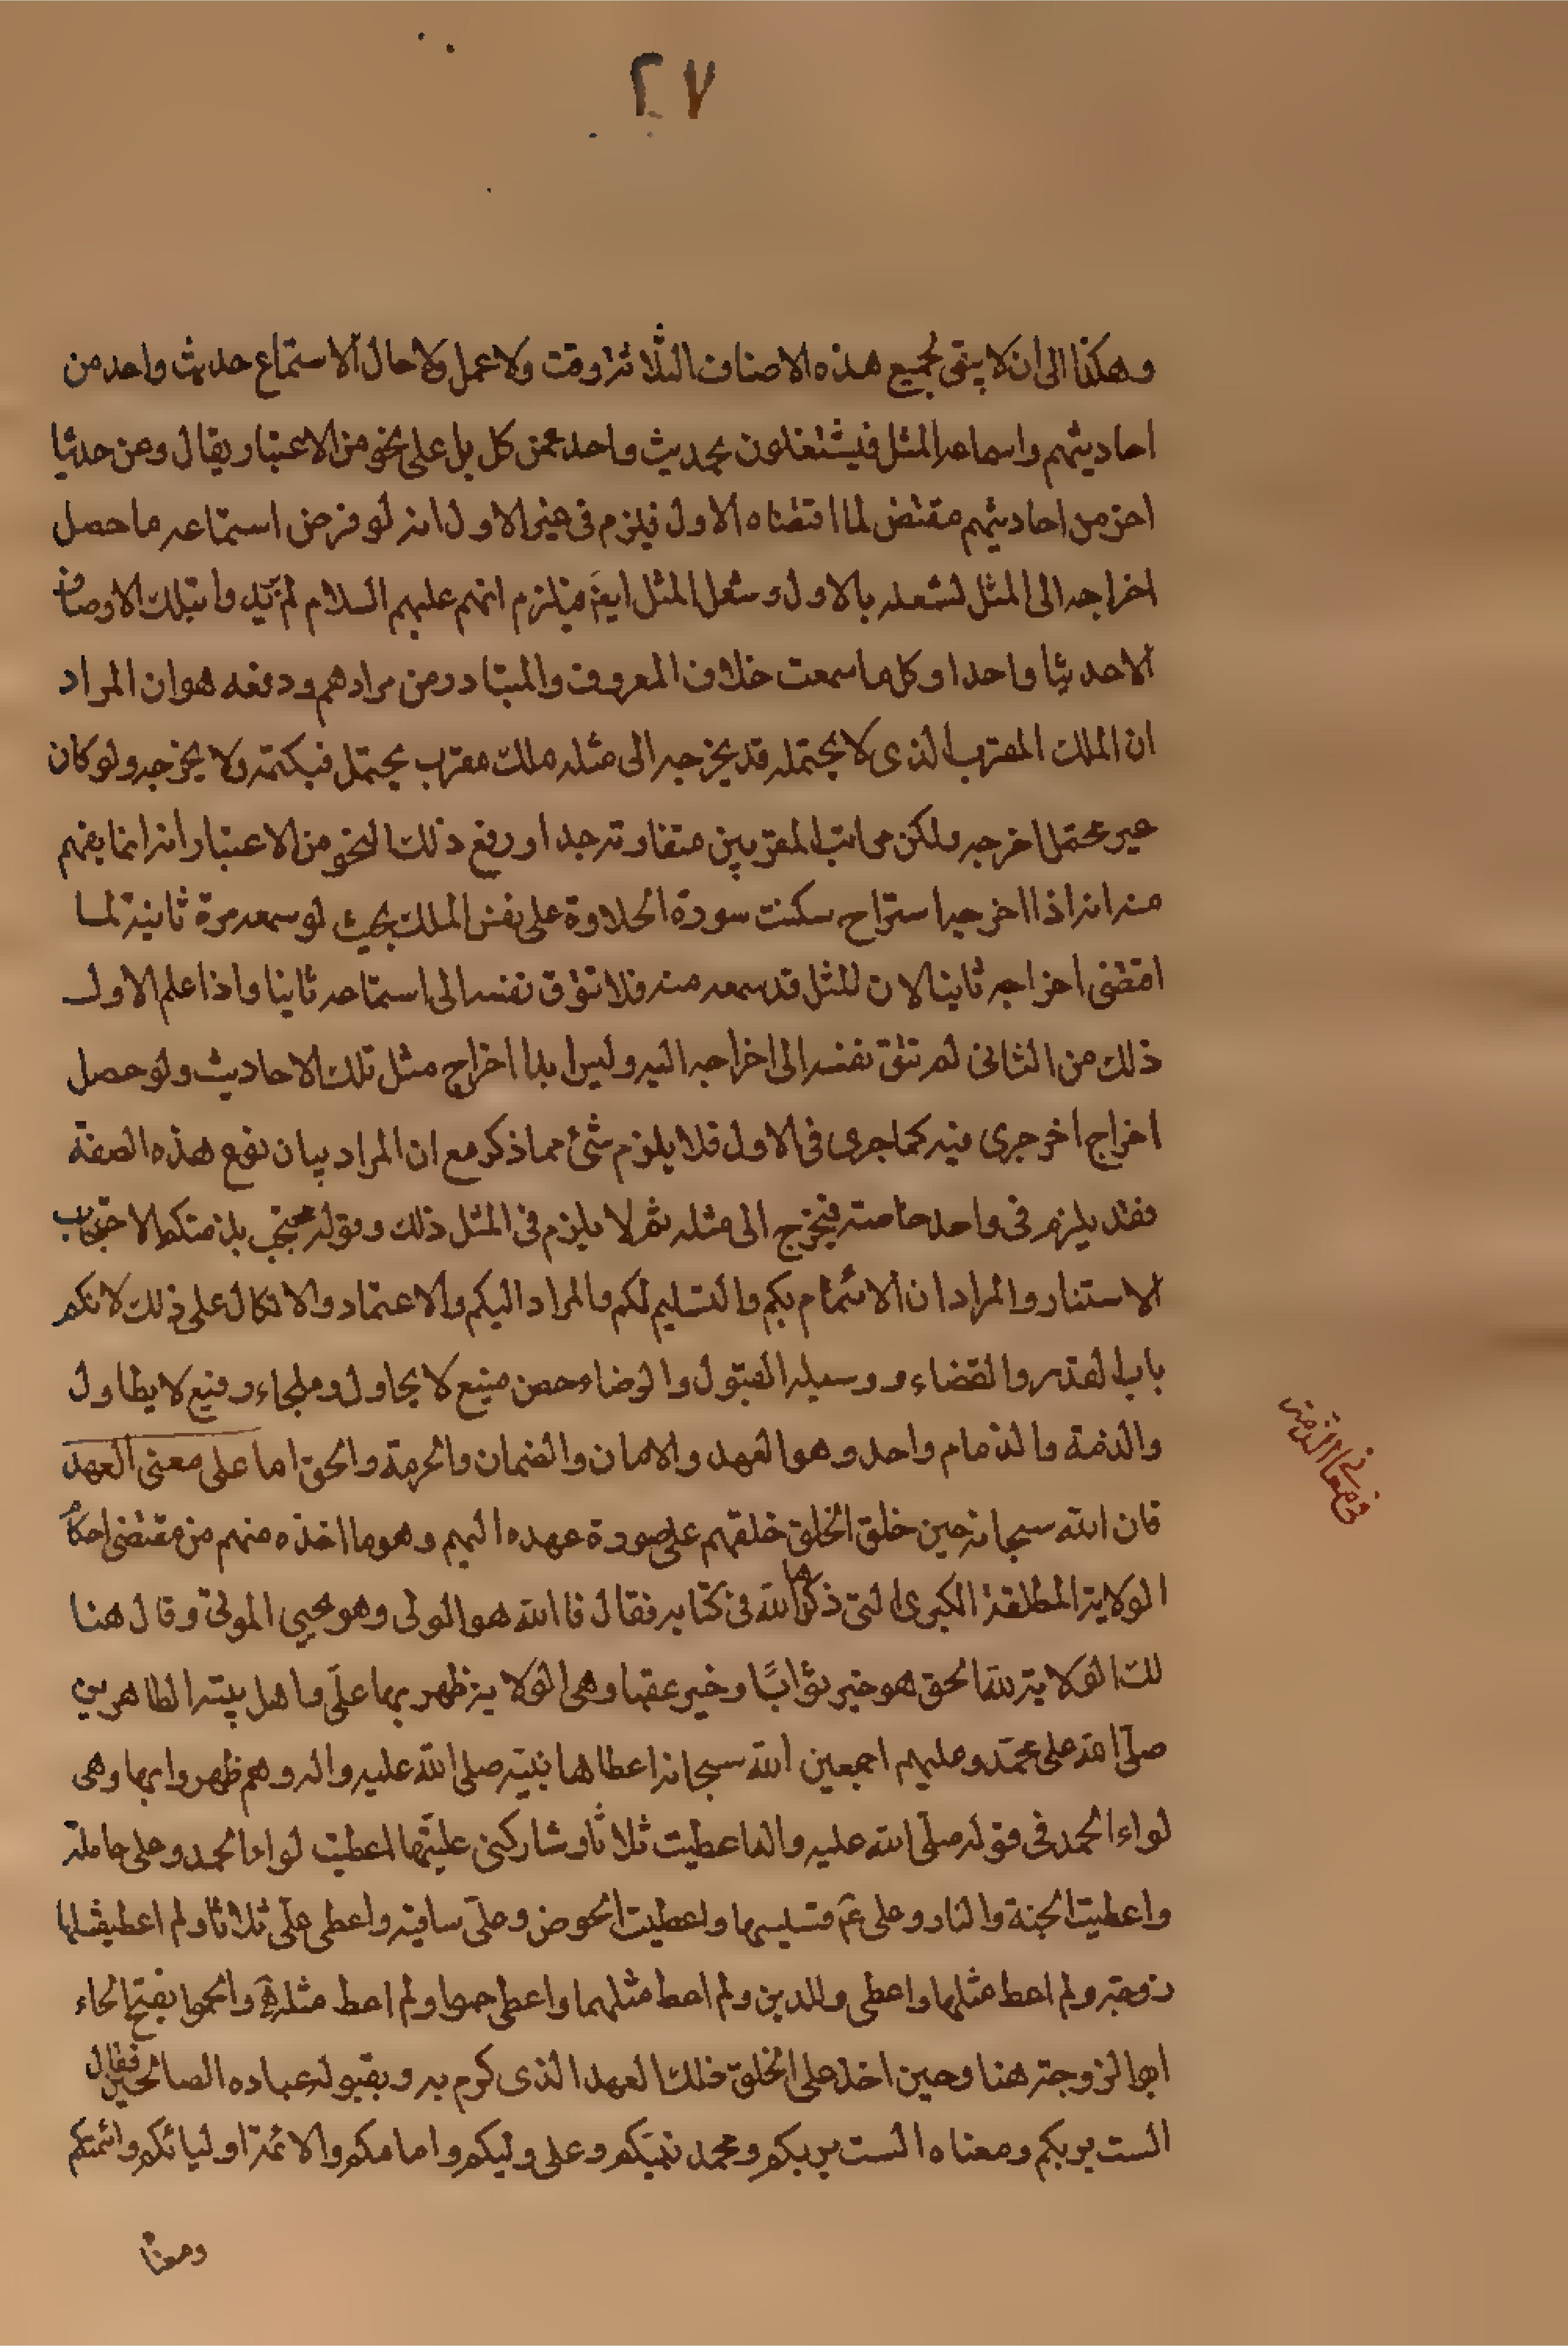 ٢٧
وهكذا الى ان لا يبقى لجميع هذه الاصناف الثلاثة وقت ولا عمل ولا حال الا استماع حديث واحد من
احاديثهم واسماعه المثل فيشتغلون بحديث واحد عمن كل بل على نحو من الاعتبار يقال ومن حديثا
اخر من احاديثهم مقتض لما اقتضاه الاول فيلزم في حيز الاول انه لو فرض استماعه ما حصل
اخراجه الى المثل لشغله بالاول وشغل المثل ايضَ فيلزم انهم عليهم السلام لم يريدوا بتلك الاوصاف
الا حديثا واحدا وكل ما سمعت خلاف المعروف والمتبادر من مرادهم ودفعه هو ان المراد
ان الملك المقرب الذى لا يحتمله قد يخرجه الى مثله ملك مقرب يحتمل فيكتمه ولا يخرجه ولو كان
غير محتمل اخرجه ولكن مراتب المقربين متفاوته جدا ورفع ذلك النحو من الاعتبار انه انما يفهم
منه انه اذا اخرجه استراح سكنت سورة الحلاوة على نفس الملك بحيث لو سمعه مرة ثانية لما
اقتضى اخراجه ثانيا لان للمثل قد سمعه منه فلا تتوق نفسه الى استماعه ثانيا واذا علم الاول
ذلك من الثانى لم تتق نفسه الى اخراجه اليه وليس ابدا اخراج مثل تلك الاحاديث ولو حصل
اخراج اخر جرى فيه كما جرى فى الاول فلا يلزم شئ مما ذكر مع ان المراد بيان نوع هذه الصفة
فقد يلزم فى واحد خاصته فيخرج الى مثله ثم لا يلزم فى المثل ذلك وقوله محتجب بذمتكم الاحتجاب
الاستتار والمراد ان الائتمام بكم والتسليم لكم والمراد اليكم والاعتماد والاتكال على ذلك لانكم
باب القدر والقضاء ووسيله القبول والرضاء حصن منيع لا يحاول وملجاء وفيع لا يطاول
والذمة والذمام واحد وهو العهد والامان والضمان والحرمة والحق اما على معنى العهد
فى معنا الذمة
فان الله سبحانه حين خلق الخلق خلقهم على صورة عهده اليهم وهو ما اخذه منهم من مقتضى احكام
الولاية المطلقة الكبرى التى ذكرها الله فى كتابه فقال فا الله هو الولى وهو يحيى الموتى وقال هنا
لك الولاية لله الحق هو خير ثوابًا وخير عقبا وهى الولاية ظهر بها علىّ واهل بيته الطاهرين
صلّى الله على محمّد وعليهم اجمعين الله سبحانه اعطاها نبيّه صلى الله عليه واله وهم ظهروا بها وهى
لواء الحمد فى قوله صلّى الله عليه واله اعطيت ثلاثا وشاركنى علىّ فيها اعطيت لواء الحمد وعلى حامله
واعطيت الجنة والنار وعلى عَم قسيمها واعطيت الحوض وعلىّ ساقيه واعطى علىّ ثلاثا ولم اعط مثلها
زوجته ولم اعط مثلها واعطى ولدين ولم اعط مثلهما واعطى حموا ولم اعط مثله والحموا بفتح الحاء
ابوا الزوجة هنا وحين اخذ على الخلق ذلك العهد الذى كرم به وبقبوله عباده الصالحين فقال
الست بربكم ومعناه الست بربكم ومحمد نبيّكم وعلى وليكم وامامكم والائمة اوليائكم وائمتكم
ومعنا